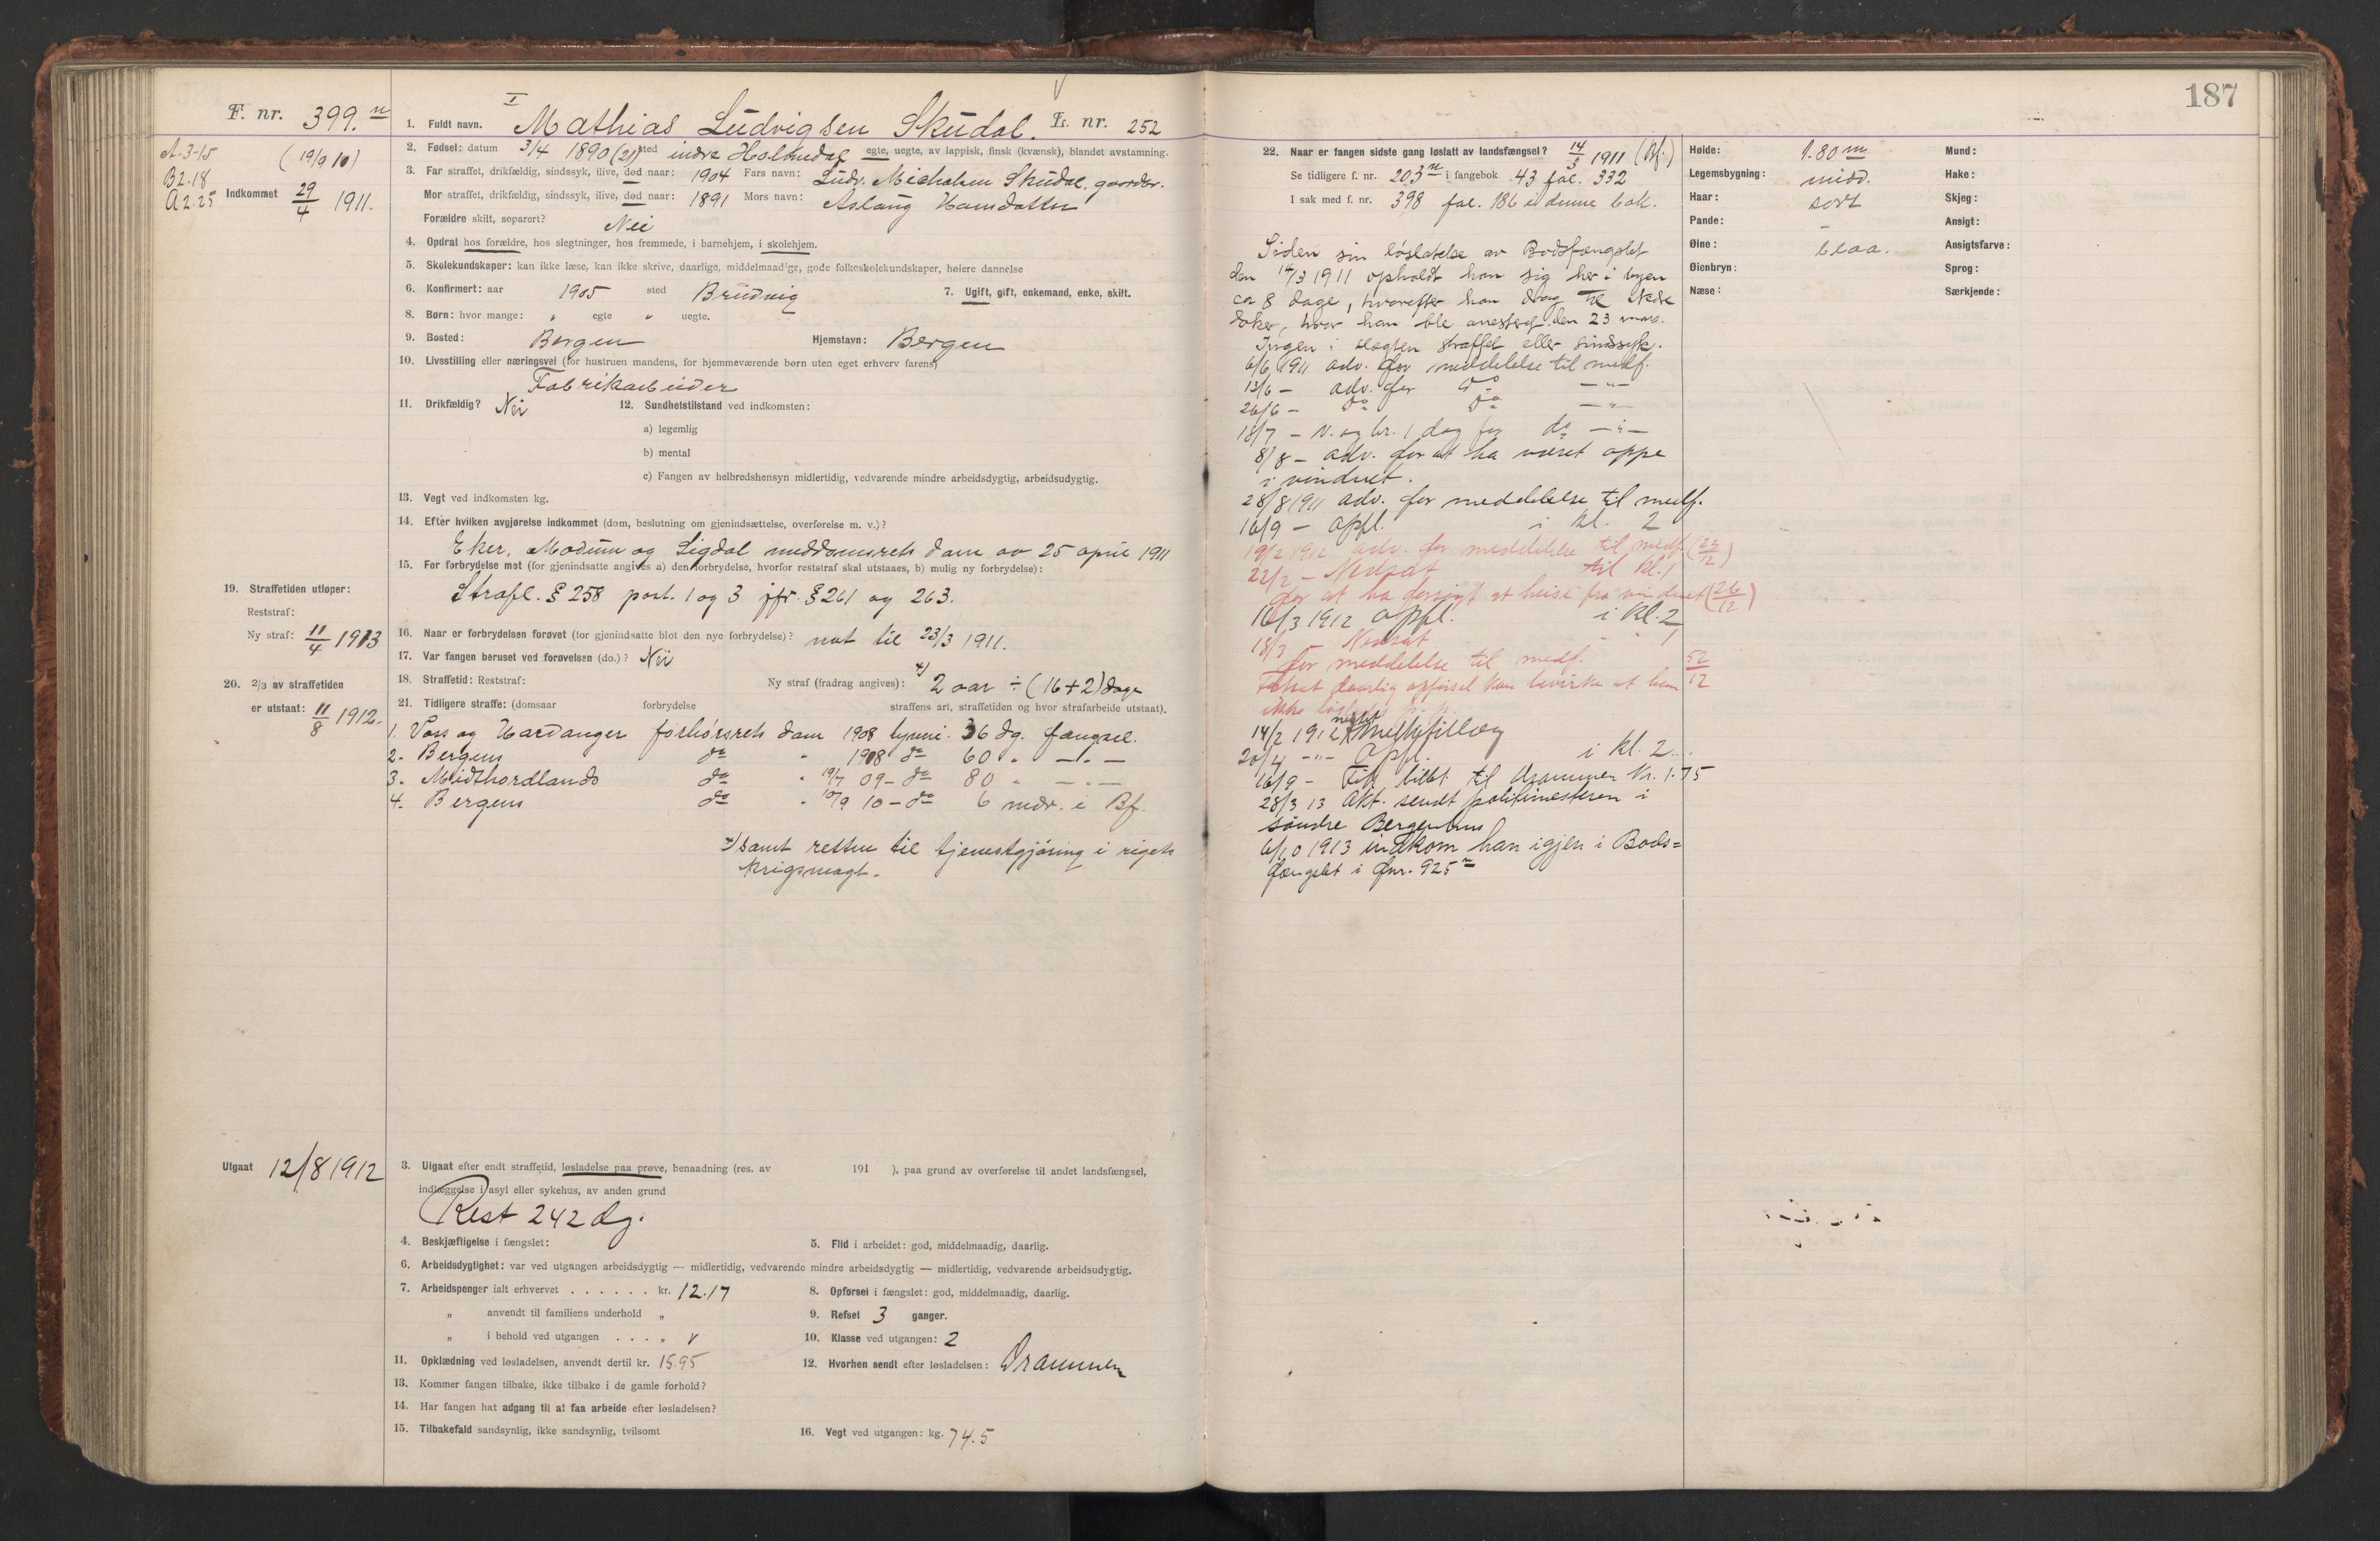 F. nr. 399.n
A.3-15 (19/9 10)
B2.18
A2.25
Indkommet 29/4 1911.
I
1. Fuldt navn. Mathias Ludvigsen Skudal. L. nr. 252
2. Fødsel: datum 3/4 1890 (21) sted indre Holmedal egte, uegte, av lappisk, finsk (kvænsk), blandet avstamning.
3. Far straffet, drikfældig, sindssyk, ilive, død naar: 1904 Fars navn: Ludv. Michalsen Skudal, gaardbr.
Mor straffet, drikfældig, sindssyk, ilive, død naar: 1891 Mors navn: Aslaug Hansdatter
Forældre skilt, separert? Nei
4. Opdrat hos forældre, hos slegtninger, hos fremmede, i barnehjem, i skolehjem.
5. Skolekundskaper: kan ikke læse, kan ikke skrive, daarlige, middelmaadige, gode folkeskolekundskaper, høiere dannelse
6. Konfirmert: aar 1905 sted Brudvig 7. Ugift, gift, enkemand, enke, skilt.
8. Børn: hvor mange: " egte " uegte.
9. Bosted: Bergen Hjemstavn: Bergen
10. Livsstilling eller næringsvei (for hustruen mandens, for hjemmeværende børn uten eget erhverv farens)
Fabrikarbeider
11. Drikfældig? Nei 12. Sundhetstilstand ved indkomsten:
a) legemlig
b) mental
c) Fangen av helbredshensyn midlertidig, vedvarende mindre arbeidsdygtig, arbeidsudygtig.
13. Vegt ved indkomsten kg.
14. Efter hvilken avgjørelse indkommet (dom, beslutning om gjenindsættelse, overførelse m. v.)?
Eker, Modum og Sigdal meddomsrets dom av 25 april 1911
15. For forbrydelse mot (for gjenindsatte angives a) den forbrydelse, hvorfor reststraf skal utstaaes, b) mulig ny forbrydelse):
Strafl. § 258 part. 1 og 3 jfr. § 261 og 263.
19. Straffetiden utløper:
Reststraf:
Ny straf: 11/4 1913
16. Naar er forbrydelsen forøvet (for gjenindsatte blot den nye forbrydelse)? nat til 23/3 1911.
17. Var fangen beruset ved forøvelsen (do.)? Nei
20. 2/3 av straffetiden
er utstaat: 11/8 1912.
18. Straffetid: Reststraf: Ny straf (fradrag angives): *) 2 aar ÷ (16+2) dage
21. Tidligere straffe: (domsaar forbrydelse straffens art, straffetiden og hvor strafarbeide utstaat).
1. Voss og Hardanger forhørsrets dom 1908 tyveri 36 dg. fængsel.
2. Bergens do " 1908 do 60 " — " —
3. Midthordlands do " 19/7 09 – do 80 " — " —
4. Bergens do " 10/9 10 – do 6 mdr. i Bf.
*) samt retten til tjenestgjøring i rigets
krigsmagt.
Utgaat 12/8 1912
3. Utgaat efter endt straffetid, løsladelse paa prøve, benaadning (res. av 191 ), paa grund av overførelse til andet landsfængsel,
indlæggelse i asyl eller sykehus, av anden grund
Rest 242 dg.
4. Beskjæftigelse i fængslet: 5. Flid i arbeidet: god, middelmaadig, daarlig.
6. Arbeidsdygtighet: var ved utgangen arbeidsdygtig — midlertidig, vedvarende mindre arbeidsdygtig — midlertidig, vedvarende arbeidsudygtig.
7. Arbeidspenger ialt erhvervet . . . . . . kr. 12.17 8. Opførsel i fængslet: god, middelmaadig, daarlig.
" anvendt til familiens underhold " 9. Refset 3 ganger.
" i behold ved utgangen . . . " 10. Klasse ved utgangen: 2
11. Opklædning ved løsladelsen, anvendt dertil kr. 15.95 12. Hvorhen sendt efter løsladelsen: Drammen
13. Kommer fangen tilbake, ikke tilbake i de gamle forhold?
14. Har fangen hat adgang til at faa arbeide efter løsladelsen?
15. Tilbakefald sandsynlig, ikke sandsynlig, tvilsomt 16. Vegt ved utgangen: kg. 74.5
187
22. Naar er fangen sidste gang løslatt av landsfængsel? 14/3 1911 (Bf.)
Se tidligere f. nr. 203n i fangebok 43 fol. 332
I sak med f. nr. 398 fol. 186 i denne bok.
Siden sin løslatelse av Bodsfængslet
den 14/3 1911 opholdt han sig her i byen
ca 8 dage, hvorefter han drog til
hvor han ble arrestert den 23 mars.
Ingen i slegten straffet eller sindssyk.
6/6 1911 adv. for meddelelse til medf.
13/6 – adv. for do — " —
26/6 – do do — " —
18/7 – V. og br. 1 dag for do — " —
8/8 – adv. for at ha været oppe
i vinduet.
28/8 1911 adv. for meddelelse til medf.
16/9 – opfl. i kl. 2
19/2 1912 adv. for meddelelse til medf. (23/12)
22/2 – Nedsat til kl. 1
for at ha forsøgt at heise fra vinduet (26/12)
16/3 1912 opfl. i kl. 2
18/3 – Nedsat " " 1
for meddelelse til medf. 52/12
daarlig opførsel kan bevirke at han
ikke løslates p. p.
14/2 1912 negtet melketillæg
20/4 — " — opfl. i kl. 2
16/9 – billet til Drammen Kr. 1.75
28/3 13 Akt. sendt politimesteren i
søndre Bergenhus
6/10 1913 indkom han igjen i Bods=
fængslet i fnr. 925n
Høide: 1.80 m Mund:
Legemsbygning: midd. Hake:
Haar: sort Skjeg:
Pande: – Ansigt:
Øine: blaa. Ansigtsfarve:
Øienbryn: Sprog:
Næse: Særkjende: